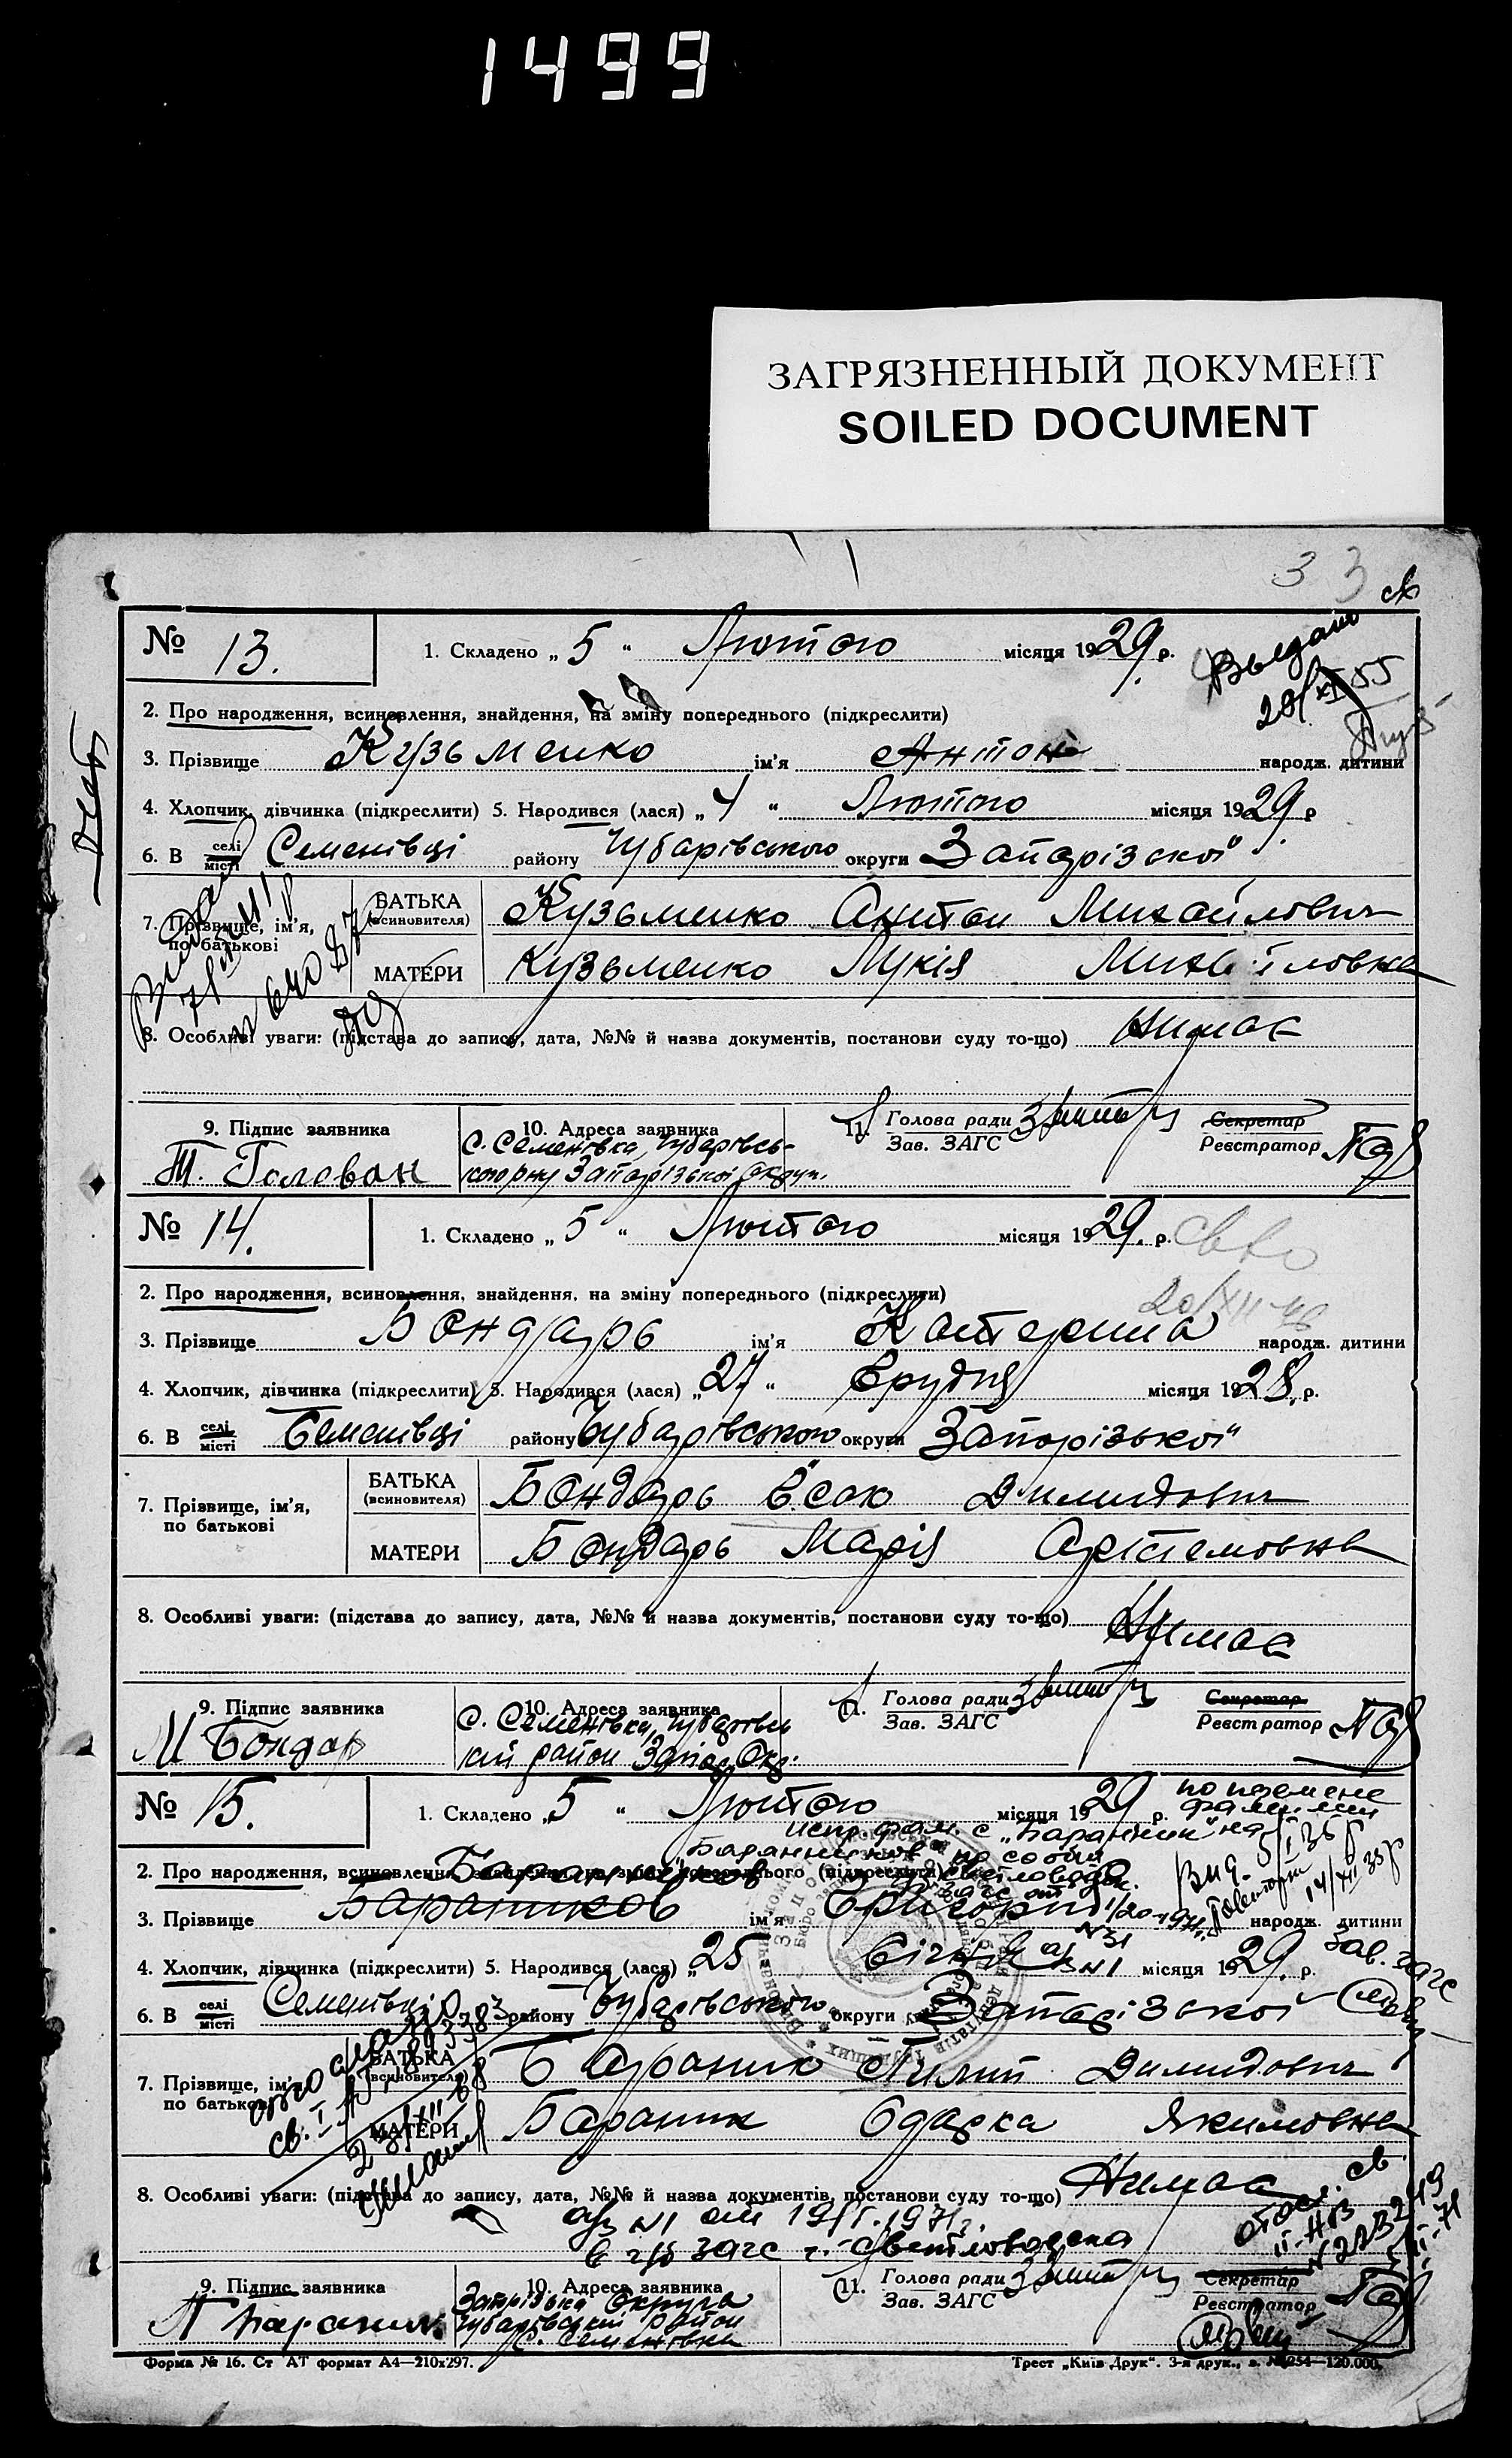 1499
ЗАГРЯЗНЕННЫЙ ДОКУМЕНТ
SOILED DOCUMENT
33
№ 13. 1. Складено „ 5 “ Лютого місяця 1929 р.
Выдано
2. Про народження, всиновлення, знайдення, на зміну попереднього (підкреслити)
3. Прізвище Кузьменко ім'я Антон народж. дитини
4. Хлопчик, дівчинка (підкреслити) 5. Народився (лася) „ 4 “ Лютого місяця 1929 р
6. В селі місті Семенівці району Чубарівського округи Запорізької
7. Прізвище, ім'я, по батькові БАТЬКА (всиновителя) Кузьменко Антон Михайлович
МАТЕРИ Кузьменко Лукія Михайловна
8. Особливі уваги: (підстава до запису, дата, №№ й назва документів, постанови суду то-що) Нимає
9. Підпис заявника 10. Адреса заявника 11. Голова ради Зав. ЗАГС Секретар Реєстратор
Т. Голован
С. Семенівка, Чубарівсь-
кого рну Запорізької Округ.
№ 14. 1. Складено „ 5 “ Лютого місяця 1929. р.
2. Про народження, всиновлення, знайдення, на зміну попереднього (підкреслити)
3. Прізвище Бондарь ім'я Катерина народж. дитини
4. Хлопчик, дівчинка (підкреслити) 5. Народився (лася) „ 27 “ Грудня місяця 1928. р.
6. В селі місті Семенівці району Чубарівського округи Запорізької
7. Прізвище, ім'я, по батькові БАТЬКА (всиновителя) Бондарь Димидович
МАТЕРИ Бондарь Марія Артемовна
8. Особливі уваги: (підстава до запису, дата, №№ й назва документів, постанови суду то-що) Нимає
9. Підпис заявника 10. Адреса заявника 11. Голова ради Зав. ЗАГС Секретар Реєстратор
М Бондар
С. Семенівка, Чубарівсь
кий район Запор. Окр.
№ 15. 1. Складено „ 5 “ Лютого місяця 1929 р.
по перемене фамилии
испр. фам. с „Баранник" на
„Баранников"
2. Про народження, всиновлення, знайдення, на зміну попереднього (підкреслити)
Баранников
3. Прізвище Бараников ім'я Григорий народж. дитини
4. Хлопчик, дівчинка (підкреслити) 5. Народився (лася) „ 25 Січня місяця 1929. р.
Зав. загс
6. В селі місті Семенівці району Чубарівського округи Запорізької
7. Прізвище, ім'я, по батькові БАТЬКА (всиновителя) Бараник Пилип Димидович
МАТЕРИ Бараник Одарка Якимовна
8. Особливі уваги: (підстава до запису, дата, №№ й назва документів, постанови суду то-що) Нимає
а/з №1 от 19/I.1971г.
в г/б загс г. Светловодска
9. Підпис заявника 10. Адреса заявника 11. Голова ради Зав. ЗАГС Секретар Реєстратор
П Бараник
Запрізька Округа
Чубарівський район
С. Семенівка
Форма № 16. Ст АТ формат А4—210х297.
Трест „Київ Друк“. 3-я друк., з. № 254—120.000.